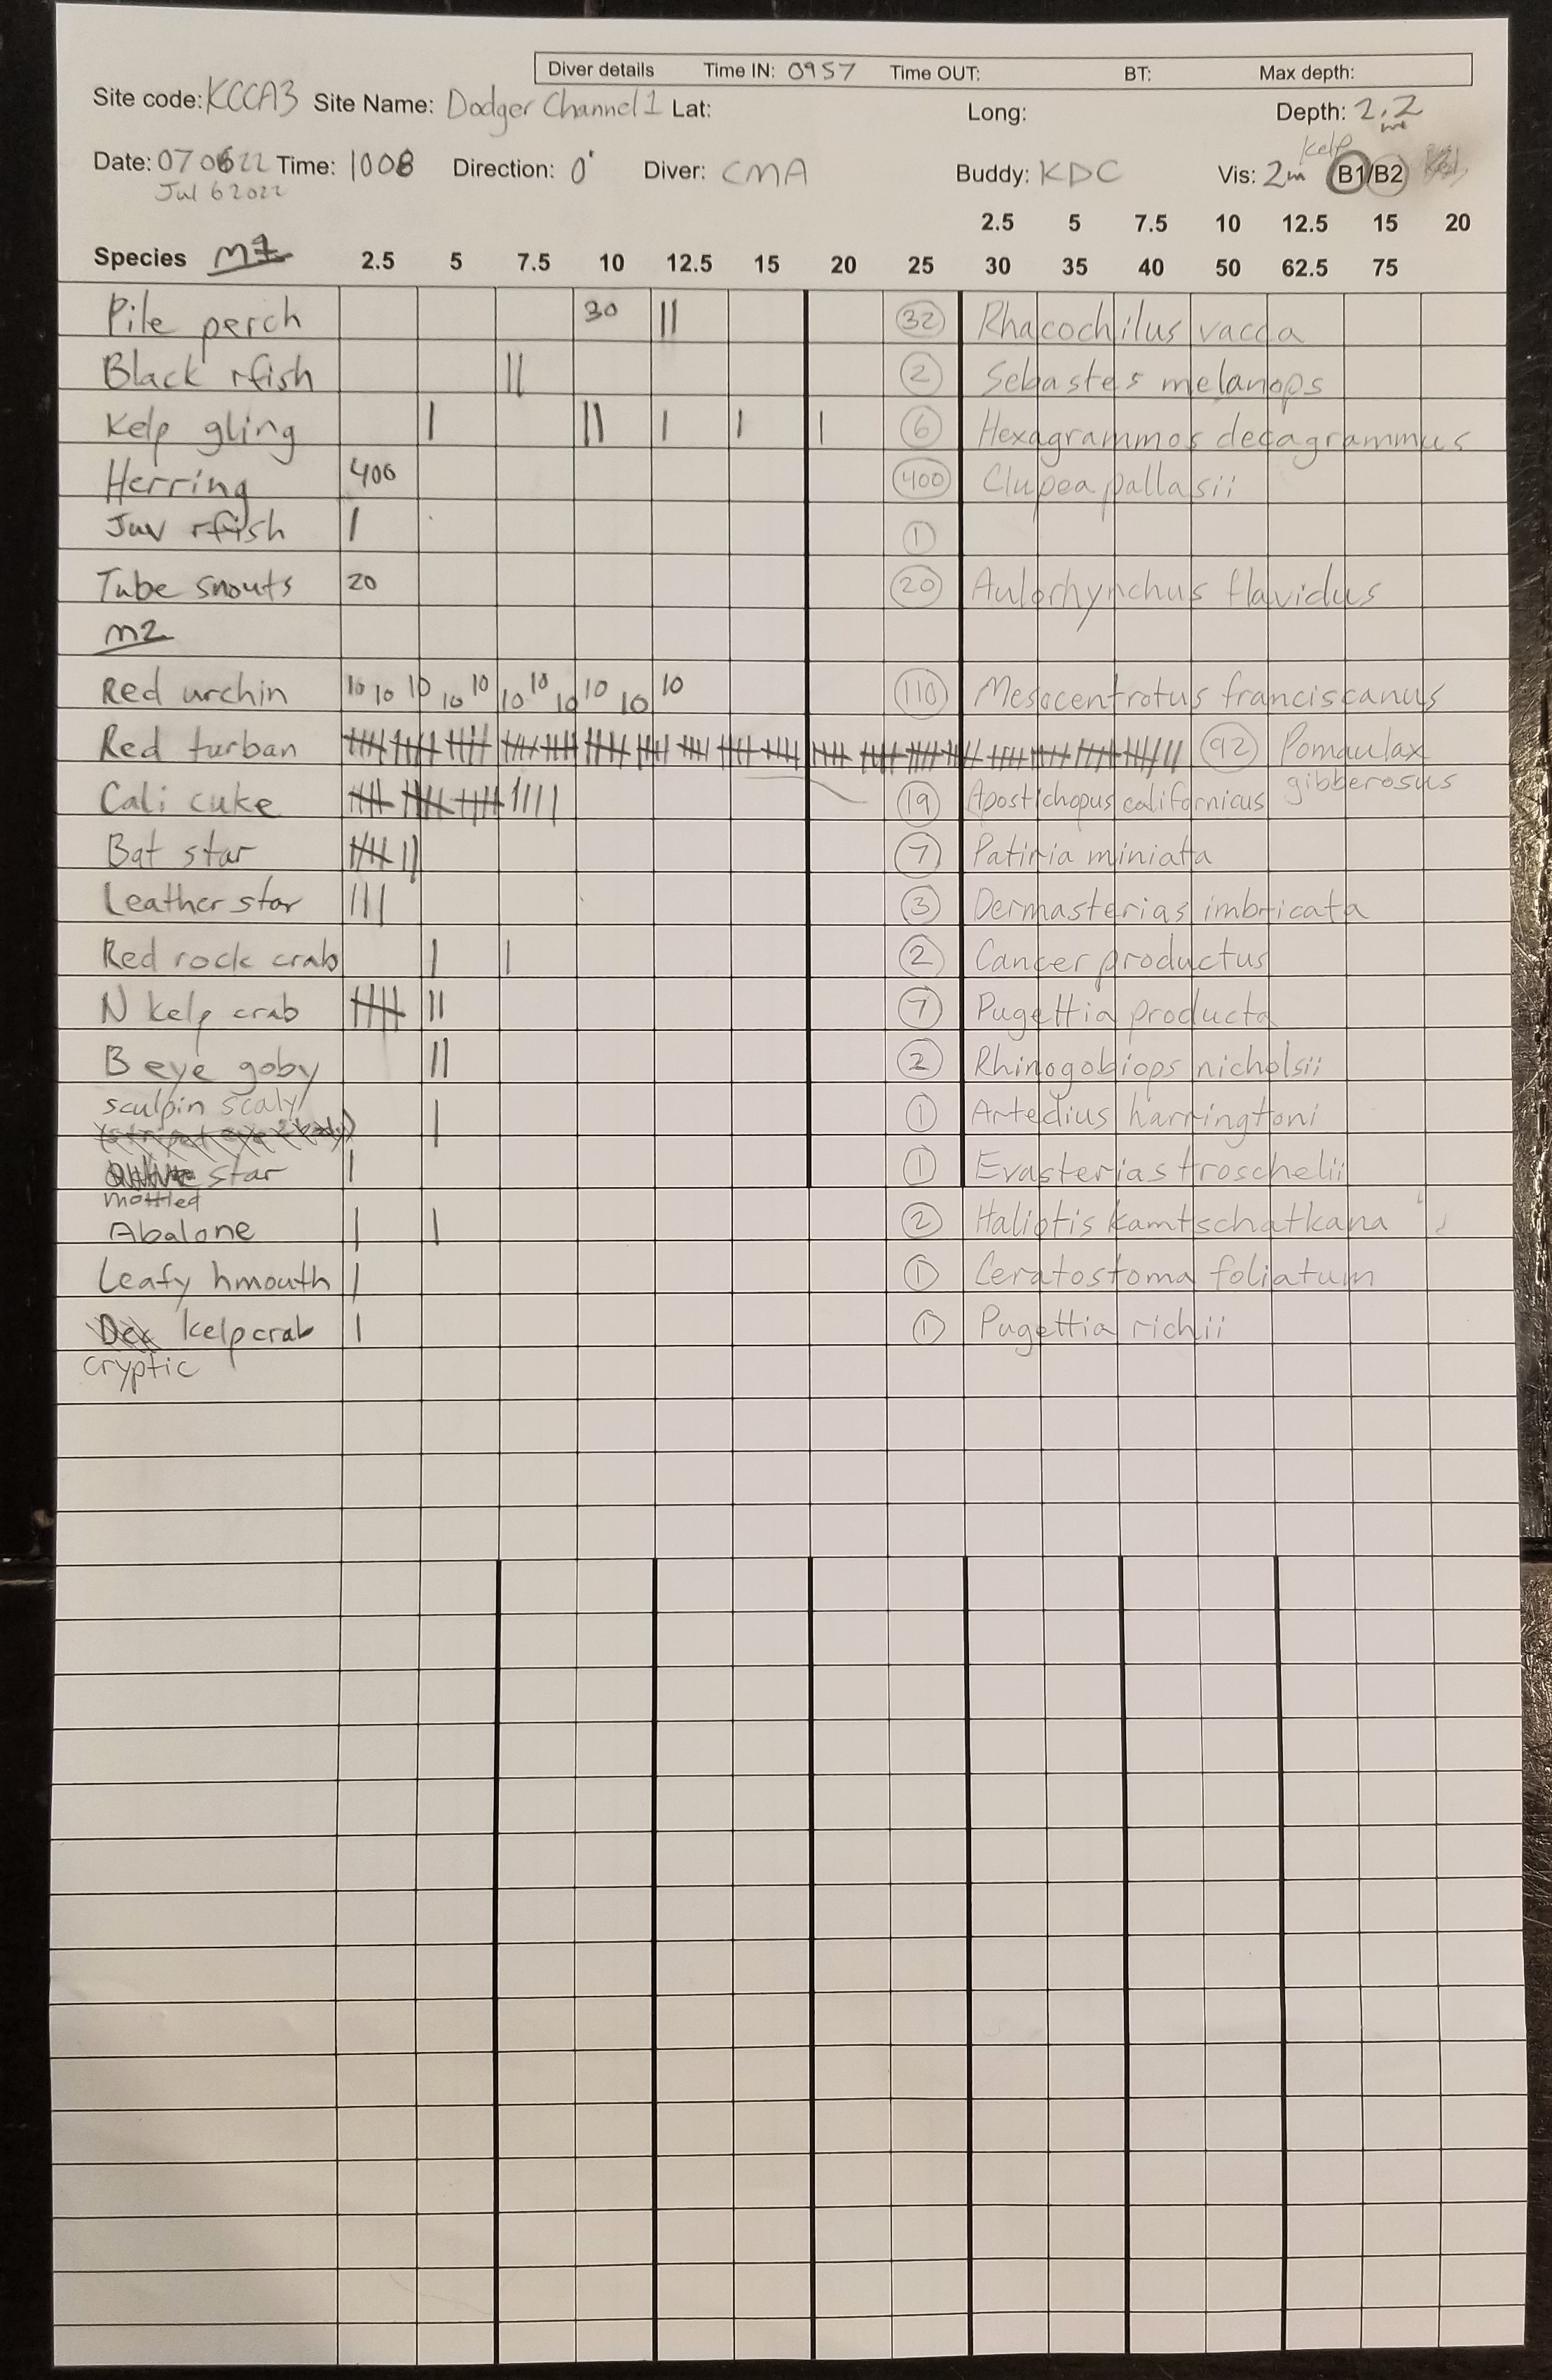 Diver details Time IN: 0957 Time OUT: BT: Max depth:
Site code: KCCA3 Site Name: Dodger Channel 1 Lat: Long: Depth: 2.2 m
Kelp
Date: 070622 Time: 1008 Direction: 0° Diver: CMA Buddy: KDC Vis: 2m B1/B2
Jul 6 2022
2.5 5 7.5 10 12.5 15 20
Species M1 2.5 5 7.5 10 12.5 15 20 25 30 35 40 50 62.5 75
Pile perch 30 || 32 Rhacochilus vacca
Black rfish || 2 Sebastes melanops
Kelp gling | || | | | 6 Hexagrammos decagrammus
Herring 400 400 Clupea pallasii
Juv rfish | 1
Tube snouts 20 20 Aulorhynchus flavidus
M2
Red urchin 10 10 10 10 10 10 10 10 10 10 10 110 Mesocentrotus franciscanus
Red turban 92 Pomaulax
gibberosus
Cali cuke 19 Apostichopus californicus
Bat star 7 Patiria miniata
Leather star ||| 3 Dermasterias imbricata
Red rock crab | | 2 Cancer productus
N kelp crab || 7 Pugettia producta
B eye goby || 2 Rhinogobiops nicholsii
sculpin scaly | 1 Artedius harringtoni
star | 1 Evasterias troschelii
mottled
Abalone | | 2 Haliotis kamtschatkana
Leafy hmouth | 1 Ceratostoma foliatum
kelp crab | 1 Pugettia richii
cryptic